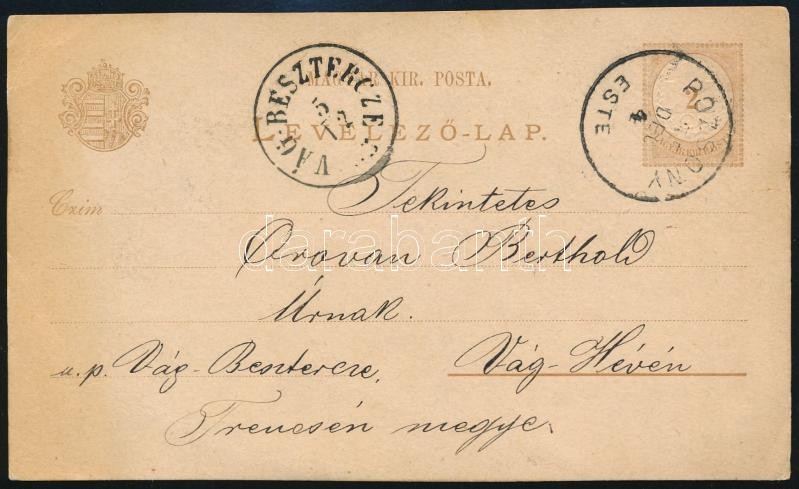 MAGYAR KIR. POSTA.
LEVELEZŐ-LAP.
VÁG-BESZTERCZE
POZSONY
ESTE
2
Czim
Tekintetes
Orovan Berthold
Úrnak.
u. p. Vág-Besztercze, Vág-Hévén
Trencsén megye.
darabanth